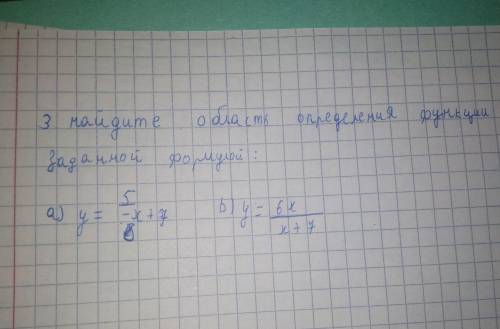 3 найдите область определения функции
заданной формулой:
а) y = 5/8 x + 7   b) y = 6x/(x + 7)